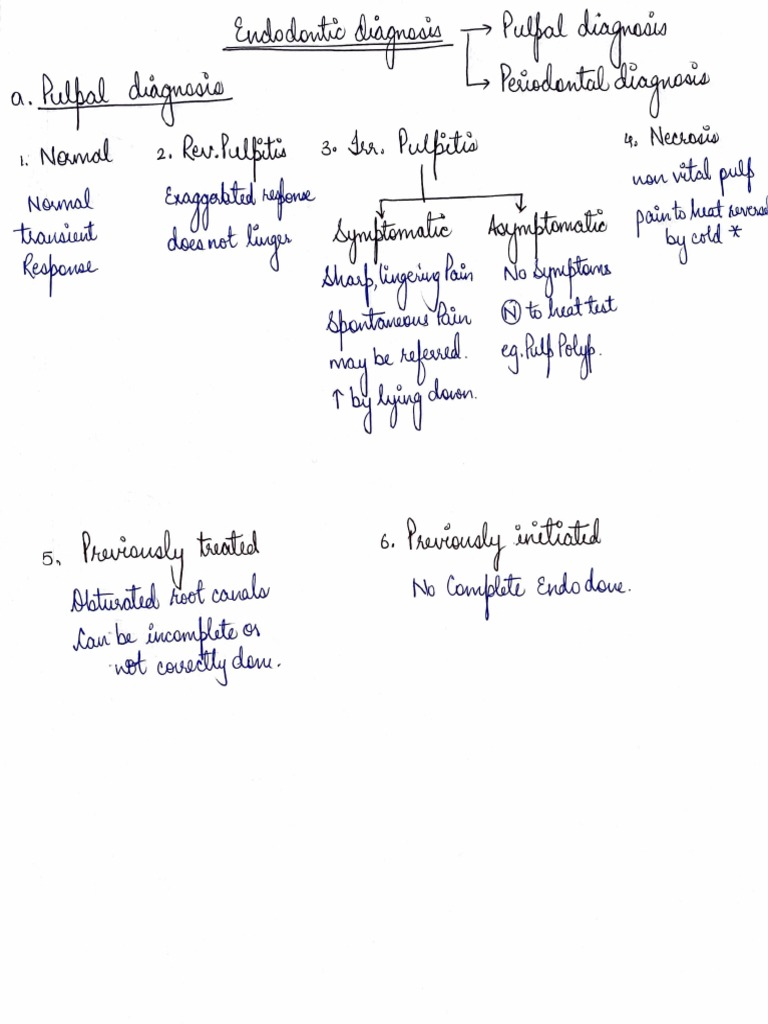 Endodontic diagnosis → Pulpal diagnosis
→ Periodontal diagnosis
a. Pulpal diagnosis
1. Normal
Normal
transient
Response
2. Rev. Pulpitis
Exaggerated response
does not linger
3. Irr. Pulpitis
Symptomatic
Sharp, lingering Pain
Spontaneous Pain
may be referred.
↑ by lying down.
Asymptomatic
No Symptoms
Ⓝ to heat test
eg. Pulp Polyp.
4. Necrosis
non vital pulp
pain to heat reversed
by cold *
5. Previously treated
Obturated root canals
Can be incomplete or
not correctly done.
6. Previously initiated
No Complete Endo done.